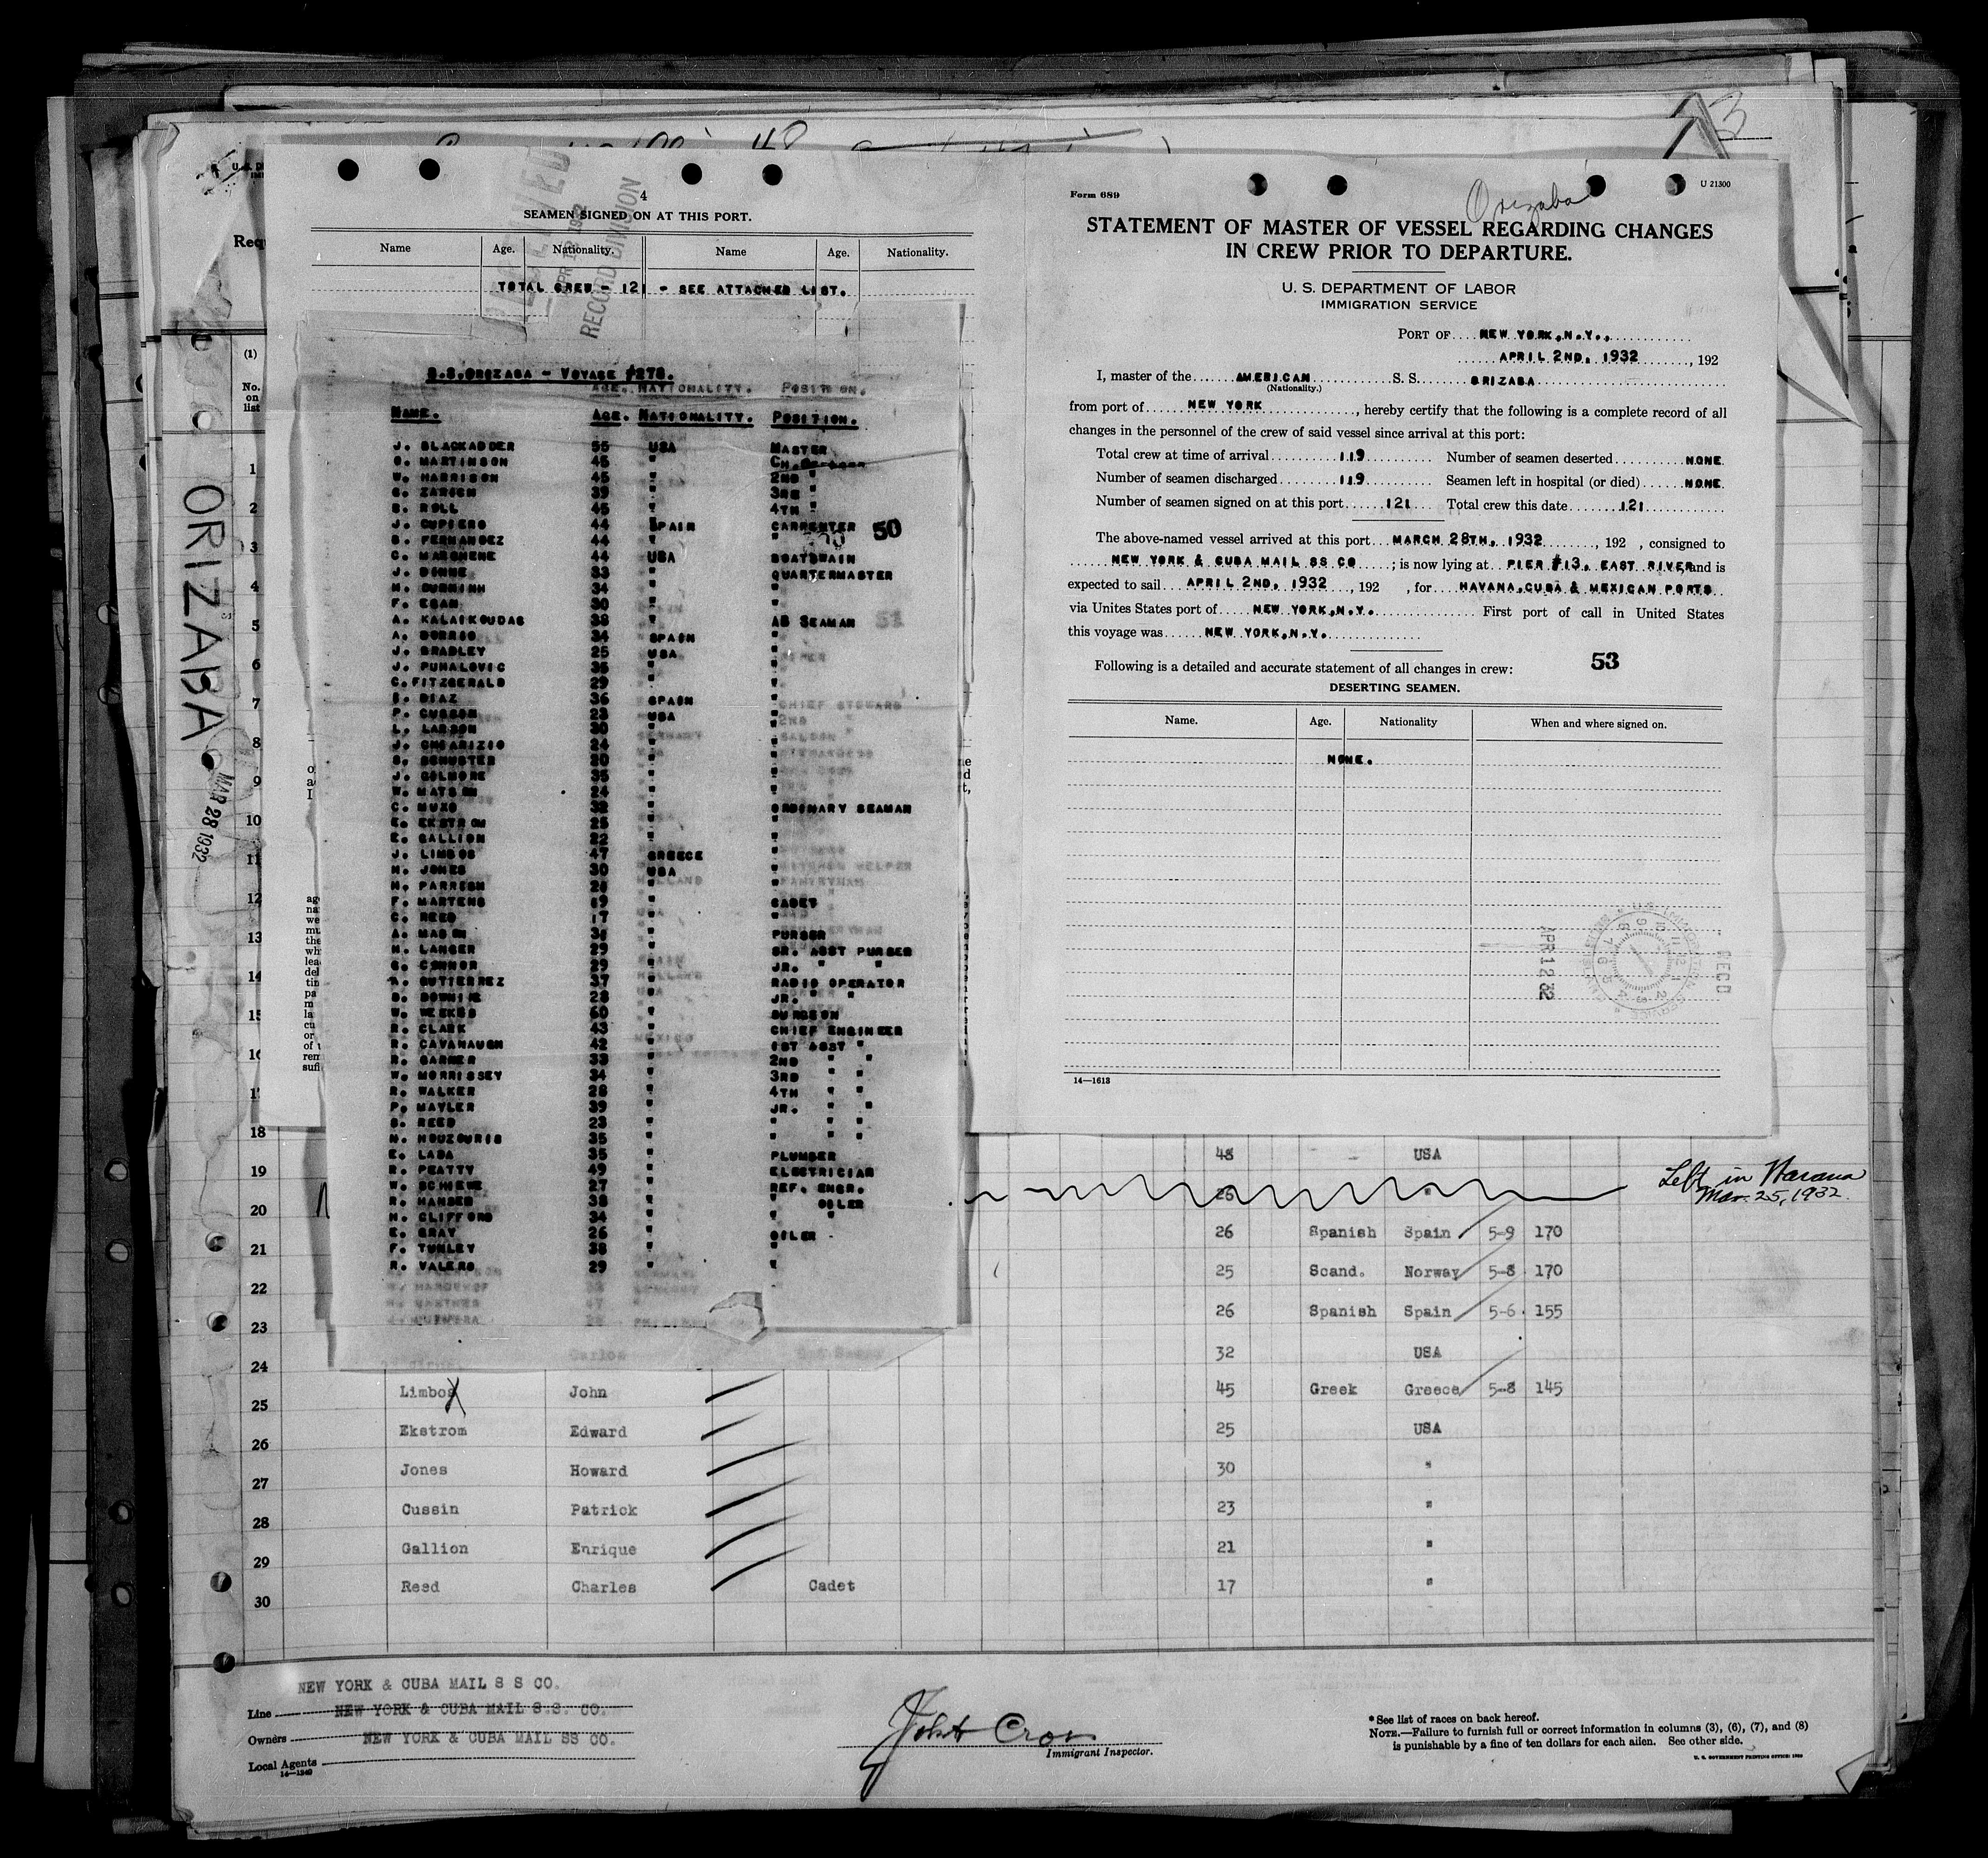 4
SEAMEN SIGNED ON AT THIS PORT.
Name Age. Nationality. Name Age. Nationality.
TOTAL CREW - 121 - SEE ATTACHED LIST.
RECORD DIVISION
S.S.ORIZABA - VOYAGE #278.
NAME. AGE. NATIONALITY. POSITION.
J. BLACKADDER 55 USA MASTER
O. MARTINSON 45 " CH.
W. HARRISON 45 " 2ND "
G. ZARSCH 39 " 3RD "
B. ROLL 45 " 4TH "
J. CUPIERO 44 SPAIN CARPENTER 50
B. FERNANDEZ 44 " "
C. MARSHENE 44 USA BOATSWAIN
J. DINNE 33 " QUARTERMASTER
H. 34 " "
F. EGAN 30 " "
A. KALAIKOUDAS 38 " AB SEAMAN
A. BORRSO 34 SPAIN "
J. BRADLEY 25 USA "
J. PUHALOVIC 35 " "
C.FITZGERALD 29 " "
S. DIAZ 36 SPAIN "
P. CUSSON 23 USA "
L. LARSON 30 " "
J. CHIARIZIO 24 " "
S. SCHUSTER 20 " "
J. GILMORE 35 " "
W. MATSON 24 " "
C. MUZO 32 " ORDINARY SEAMAN
E. EKSTROM 25 " "
E. GALLION 22 " "
J. LIMBOS 47 GREECE "
H. JONES 30 USA "
H. PARRISH 21 " "
F. MARTENS 19 " CADET
C. REED 17 " "
A. MASON 31 " PURSER
H. LANGER 29 " SR. ASST PURSER
G. CONNOR 29 " JR. " "
A. GUTIERREZ 37 " RADIO OPERATOR
D. DOWNING 28 " JR. " "
W. WEEKES 60 " SURGEON
R. CLARK 43 " CHIEF ENGINEER
R. CAVANAUGH 42 " 1ST ASST "
R. GARNER 33 " 2ND " "
W. MORRISSEY 34 " 3RD " "
R. WALKER 28 " 4TH " "
P. MAYLER 39 " JR. " "
S. REED 23 " " " "
N. HOUZOURIS 35 " " " "
E. LASA 35 " PLUMBER
R. PEATTY 49 " ELECTRICIAN
W. SCHIEWE 27 " REF. ENGR.
R. HANSEN 38 " " OILER
H. CLIFFORD 34 " " "
E. GRAY 26 " OILER
F. TUNLEY 38 " "
R. VALERO 29 " "
Form 689
Orizaba
U 21300
STATEMENT OF MASTER OF VESSEL REGARDING CHANGES
IN CREW PRIOR TO DEPARTURE.
U. S. DEPARTMENT OF LABOR
IMMIGRATION SERVICE
PORT OF NEW YORK,N.Y.,
APRIL 2ND, 1932, 192
I, master of the AMERICAN S. S. ORIZABA
(Nationality.)
from port of NEW YORK, hereby certify that the following is a complete record of all
changes in the personnel of the crew of said vessel since arrival at this port:
Total crew at time of arrival 119 Number of seamen deserted NONE
Number of seamen discharged 119 Seamen left in hospital (or died) NONE
Number of seamen signed on at this port 121 Total crew this date 121
The above-named vessel arrived at this port MARCH 28TH, 1932, 192 , consigned to
NEW YORK & CUBA MAIL SS CO; is now lying at PIER #13, EAST RIVER, and is
expected to sail APRIL 2ND, 1932, 192 , for HAVANA,CUBA & MEXICAN PORTS
via Unites States port of NEW YORK,N.Y. First port of call in United States
this voyage was NEW YORK,N.Y.
Following is a detailed and accurate statement of all changes in crew: 53
DESERTING SEAMEN.
Name. Age. Nationality When and where signed on.
NONE.
APR 12 32
RECD
14—1613
ORIZABA
MAR 28 1932
(1)
No.
on
list
1
2
3
4
5
6
7
8
9
10
11
12
13
14
15
18 48 USA
19 26 " Left in Havana
Mar. 25, 1932.
20 26 Spanish Spain 5-9 170
21 25 Scand. Norway 5-8 170
22 26 Spanish Spain 5-6 155
23 32 USA
24 Carlos
Limbos John 45 Greek Greece 5-8 145
25
Ekstrom Edward 25 USA
26
Jones Howard 30 "
27
Cussin Patrick 23 "
28
Gallion Enrique 21 "
29
Reed Charles Cadet 17 "
30
NEW YORK & CUBA MAIL S S CO.
Line NEW YORK & CUBA MAIL S.S. CO.
Owners NEW YORK & CUBA MAIL SS CO.
Local Agents
14—1240
Immigrant Inspector.
* See list of races on back hereof.
NOTE.—Failure to furnish full or correct information in columns (3), (6), (7), and (8)
is punishable by a fine of ten dollars for each alien. See other side.